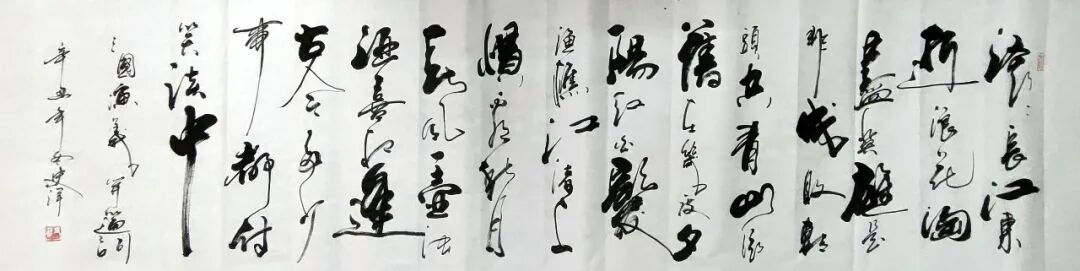 滚滚長江東
逝浪花淘
盡英雄是
非成败转
頭空青山依
舊在幾度夕
陽红白髮
渔樵江渚上
惯看秋月
春风一壶浊
酒喜相逢
古今多少
事都付
笑谈中
三國演义开篇词
辛丑年